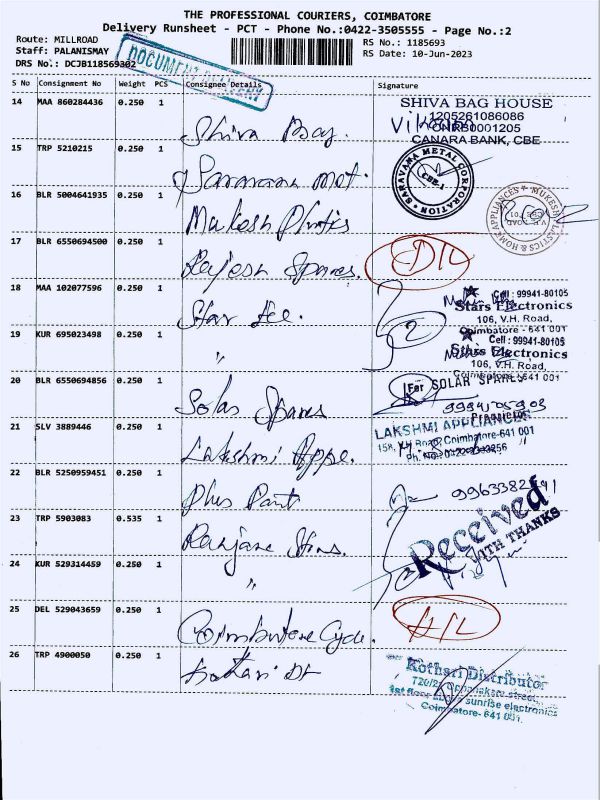 THE PROFESSIONAL COURIERS, COIMBATORE
Delivery Runsheet - PCT - Phone No.:0422-3505555 - Page No.:2
Route: MILLROAD
RS No.: 1185693
Staff: PALANISMAY
RS Date: 10-Jun-2023
DRS No.: DCJB118569302
DOCUMENT DELIVERY
S No Consignment No Weight PCS Consignee Details Signature
14 MAA 860284436 0.250 1 Shiva Bag.
SHIVA BAG HOUSE
1205261086086
CNRB0001205
CANARA BANK, CBE
15 TRP 5210215 0.250 1 Saravana Met.
SARAVANA METAL CORPORATION
CBE-1
16 BLR 5004641935 0.250 1 Mukesh
MUKESH PLASTICS & HOME APPLIANCES
17 BLR 6550694500 0.250 1 Rajesh Spares.
D/L
18 MAA 102077596 0.250 1 Star Ele.
2
Cell : 99941-80105
Stars Electronics
106, V.H. Road,
Coimbatore - 641 001
19 KUR 695023498 0.250 1 "
Cell : 99941-80105
Stars Electronics
106, V.H. Road,
Coimbatore - 641 001
20 BLR 6550694856 0.250 1 Solar Spares
For SOLAR SPARES
Proprietor
21 SLV 3889446 0.250 1 Lakshmi Appe.
LAKSHMI APPLIANCES
158, V.H Road, Coimbatore-641 001
22 BLR 5250959451 0.250 1 Plus Paint
23 TRP 5903083 0.535 1
Received
WITH THANKS
24 KUR 529314459 0.250 1 "
2
25 DEL 529043659 0.250 1 Coimbatore Cycle.
26 TRP 4900050 0.250 1 Kothari Dt
Kothari Distributor
1st floor above sunrise electronics
Coimbatore- 641 001.